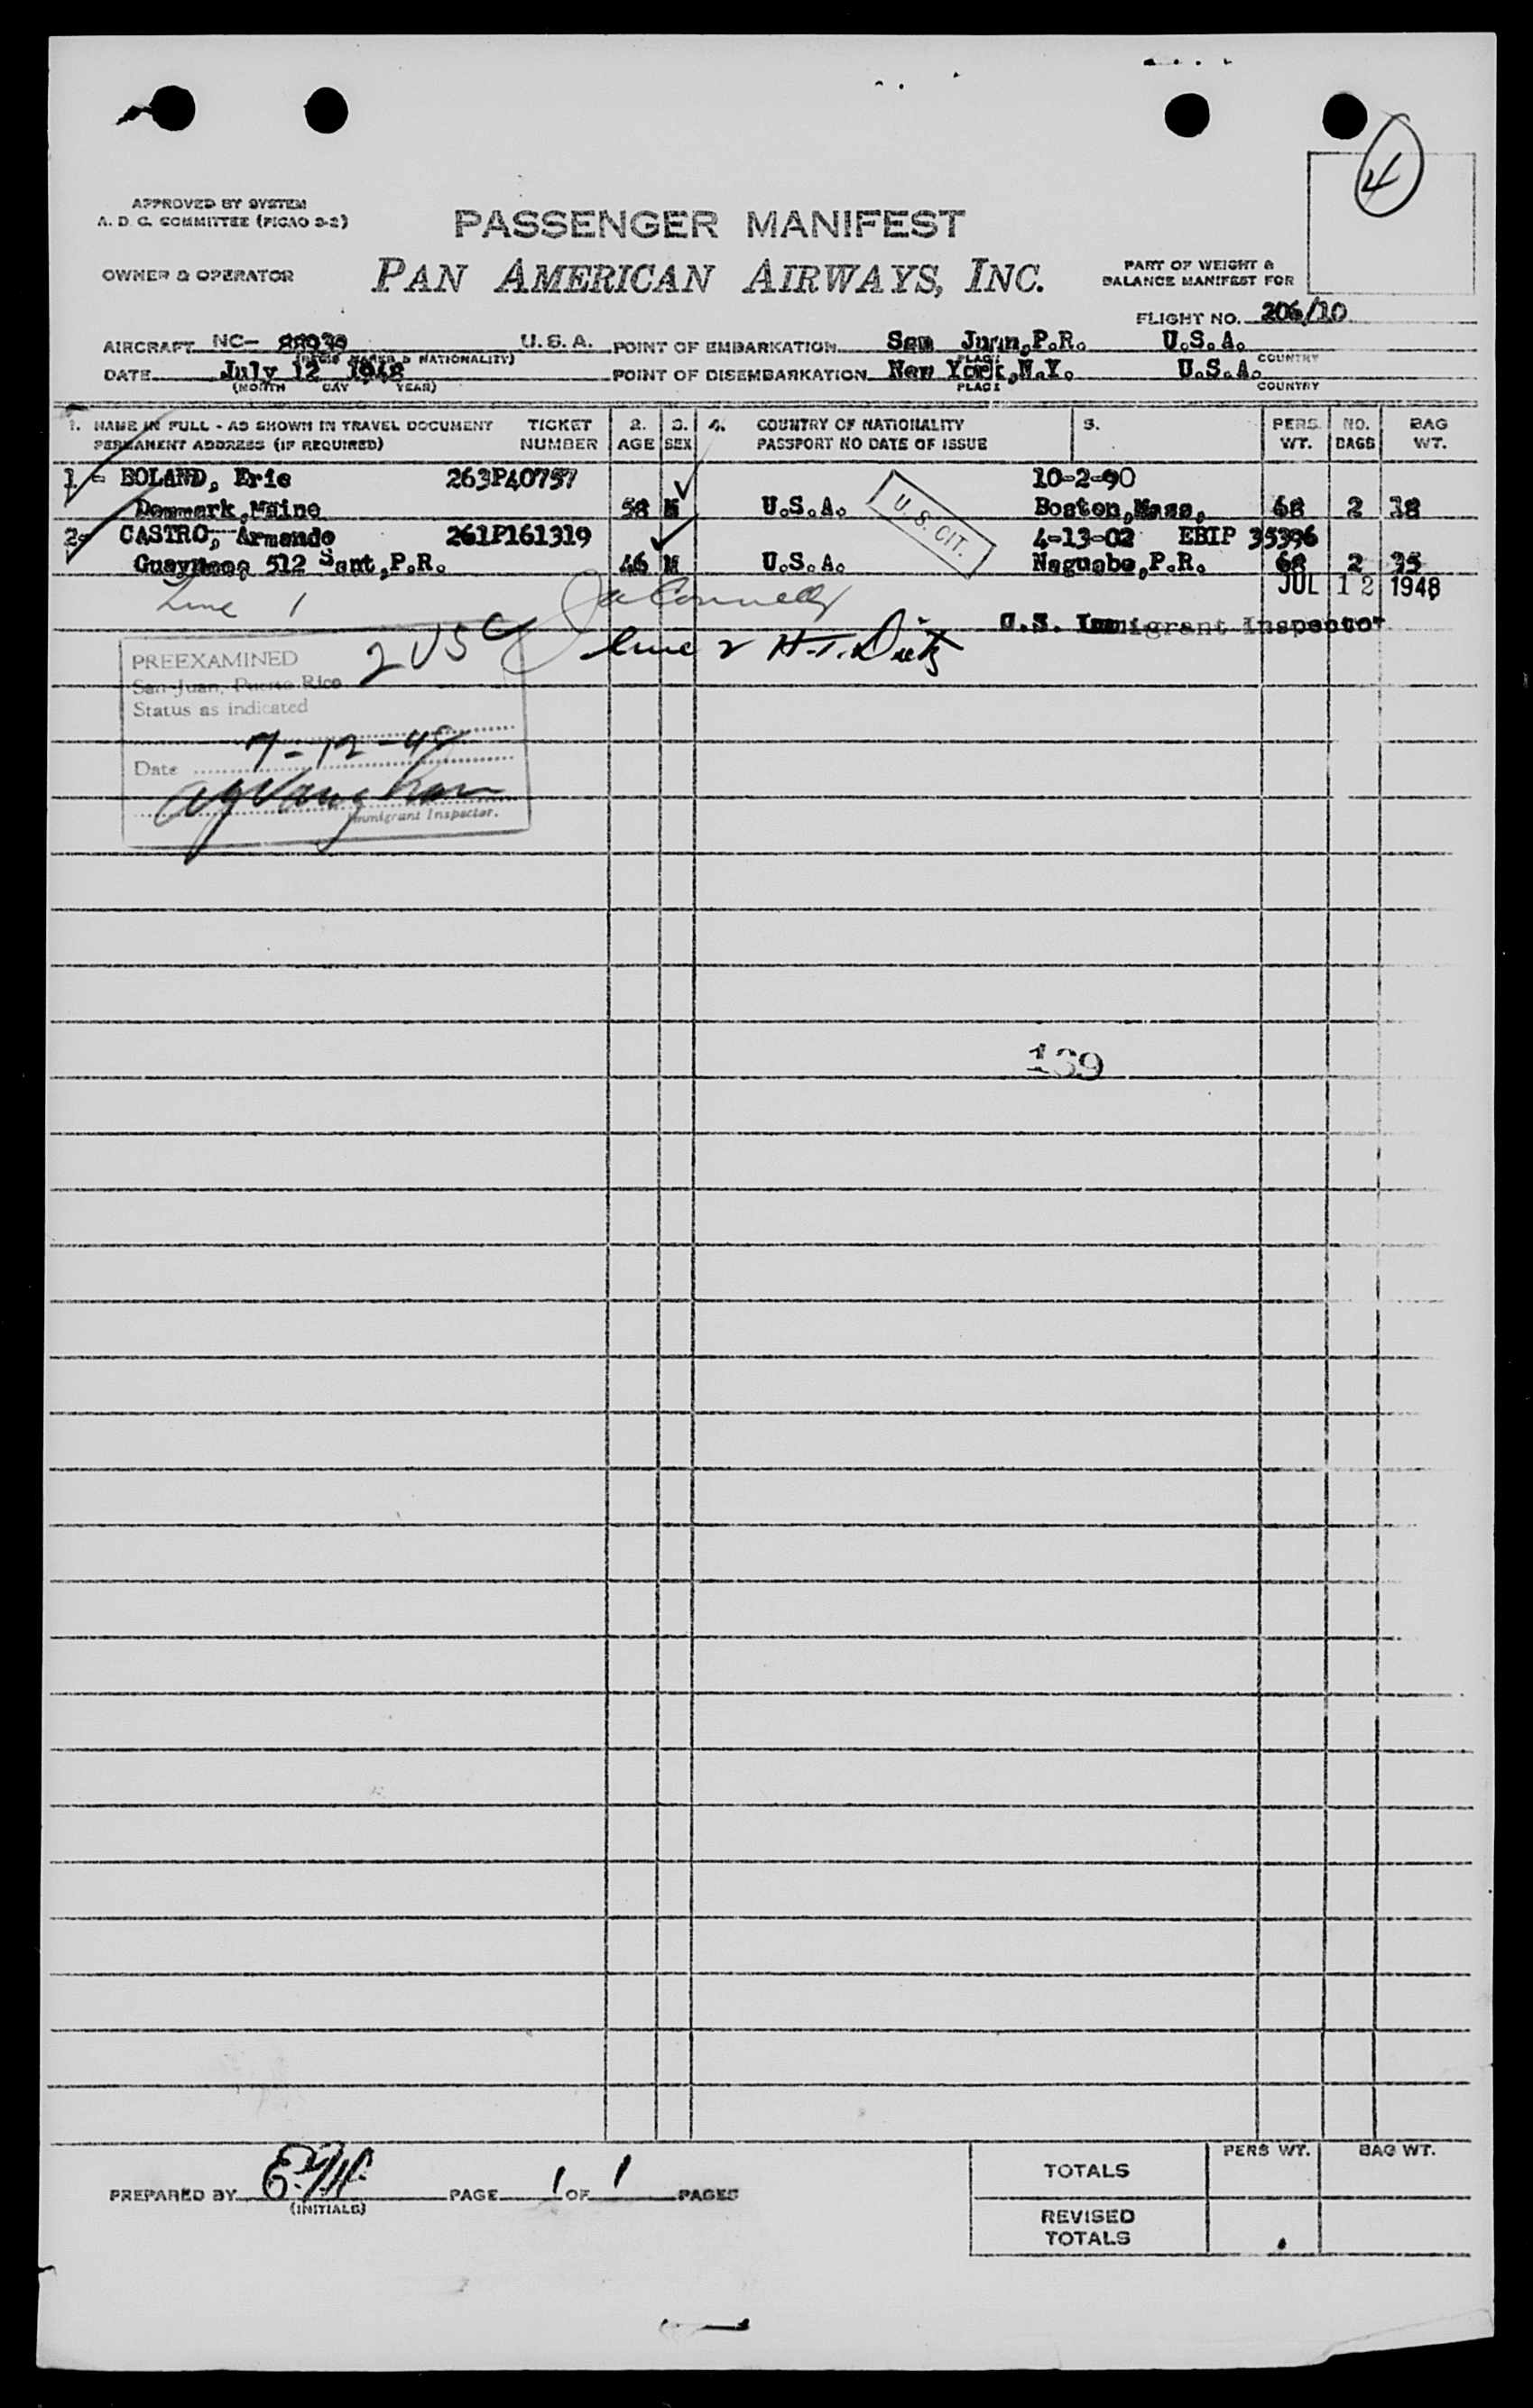 4
APPROVED BY SYSTEM
A. D. C. COMMITTEE (PICAO 3-2)
PASSENGER MANIFEST
OWNER & OPERATOR
PAN AMERICAN AIRWAYS, INC.
PART OF WEIGHT &
BALANCE MANIFEST FOR
FLIGHT NO. 206/10
AIRCRAFT NC- U. S. A. POINT OF EMBARKATION San Juan,P.R. U.S.A.
NATIONALITY) PLACE COUNTRY
DATE July 12 1948 POINT OF DISEMBARKATION New York,N.Y. U.S.A.
(MONTH DAY YEAR) PLACE COUNTRY
1. NAME IN FULL - AS SHOWN IN TRAVEL DOCUMENT TICKET 2. 3. 4. COUNTRY OF NATIONALITY 5. PERS. NO. BAG
PERMANENT ADDRESS (IF REQUIRED) NUMBER AGE SEX PASSPORT NO DATE OF ISSUE WT. BAGS WT.
1 - BOLAND, Eric 263P40757 10-2-90
Denmark,Maine 58 M U.S.A. U. S. CIT. Boston,Mass, 68 2 18
2- CASTRO, Armando 261P161319 4-13-02 EBIP 35396
512 Sant,P.R. 46 M U.S.A. Naguabo,P.R. 68 2 35
JUL 12 1948
Line 1
U.S. Immigrant Inspector
2 USC line 2 H.T.
PREEXAMINED
San Juan, Puerto Rico
Status as indicated
Date 7-12-48
Immigrant Inspector.
139
PERS WT. BAG WT.
TOTALS
PREPARED BY PAGE 1 OF 1 PAGES
(INITIALS)
REVISED
TOTALS